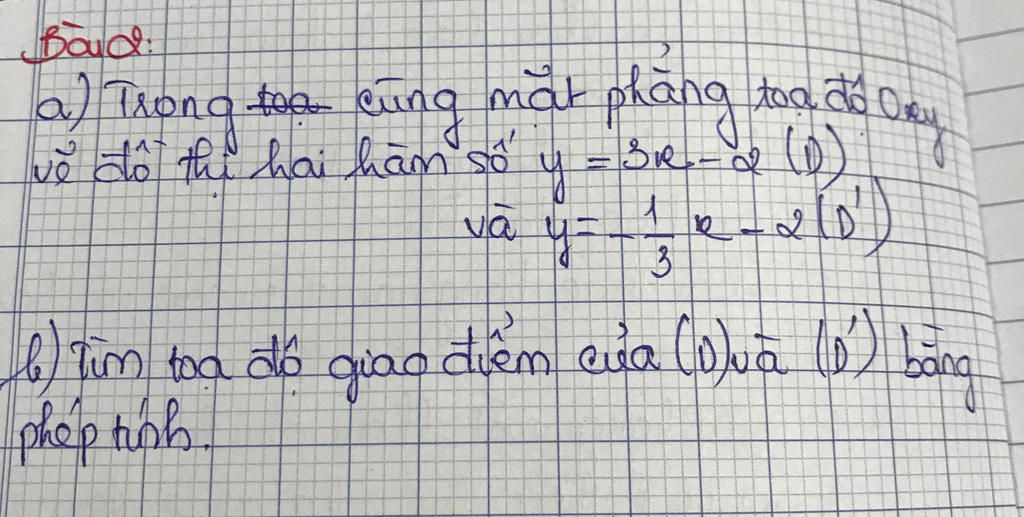 Bài 2:
a) Trong toạ cùng mặt phẳng toạ độ Oxy
vẽ đồ thị hai hàm số y = 3x - 2 (D)
và y = - \frac{1}{3} x - 2 (D')
b) Tìm toạ độ giao điểm của (D) và (D') bằng
phép tính.